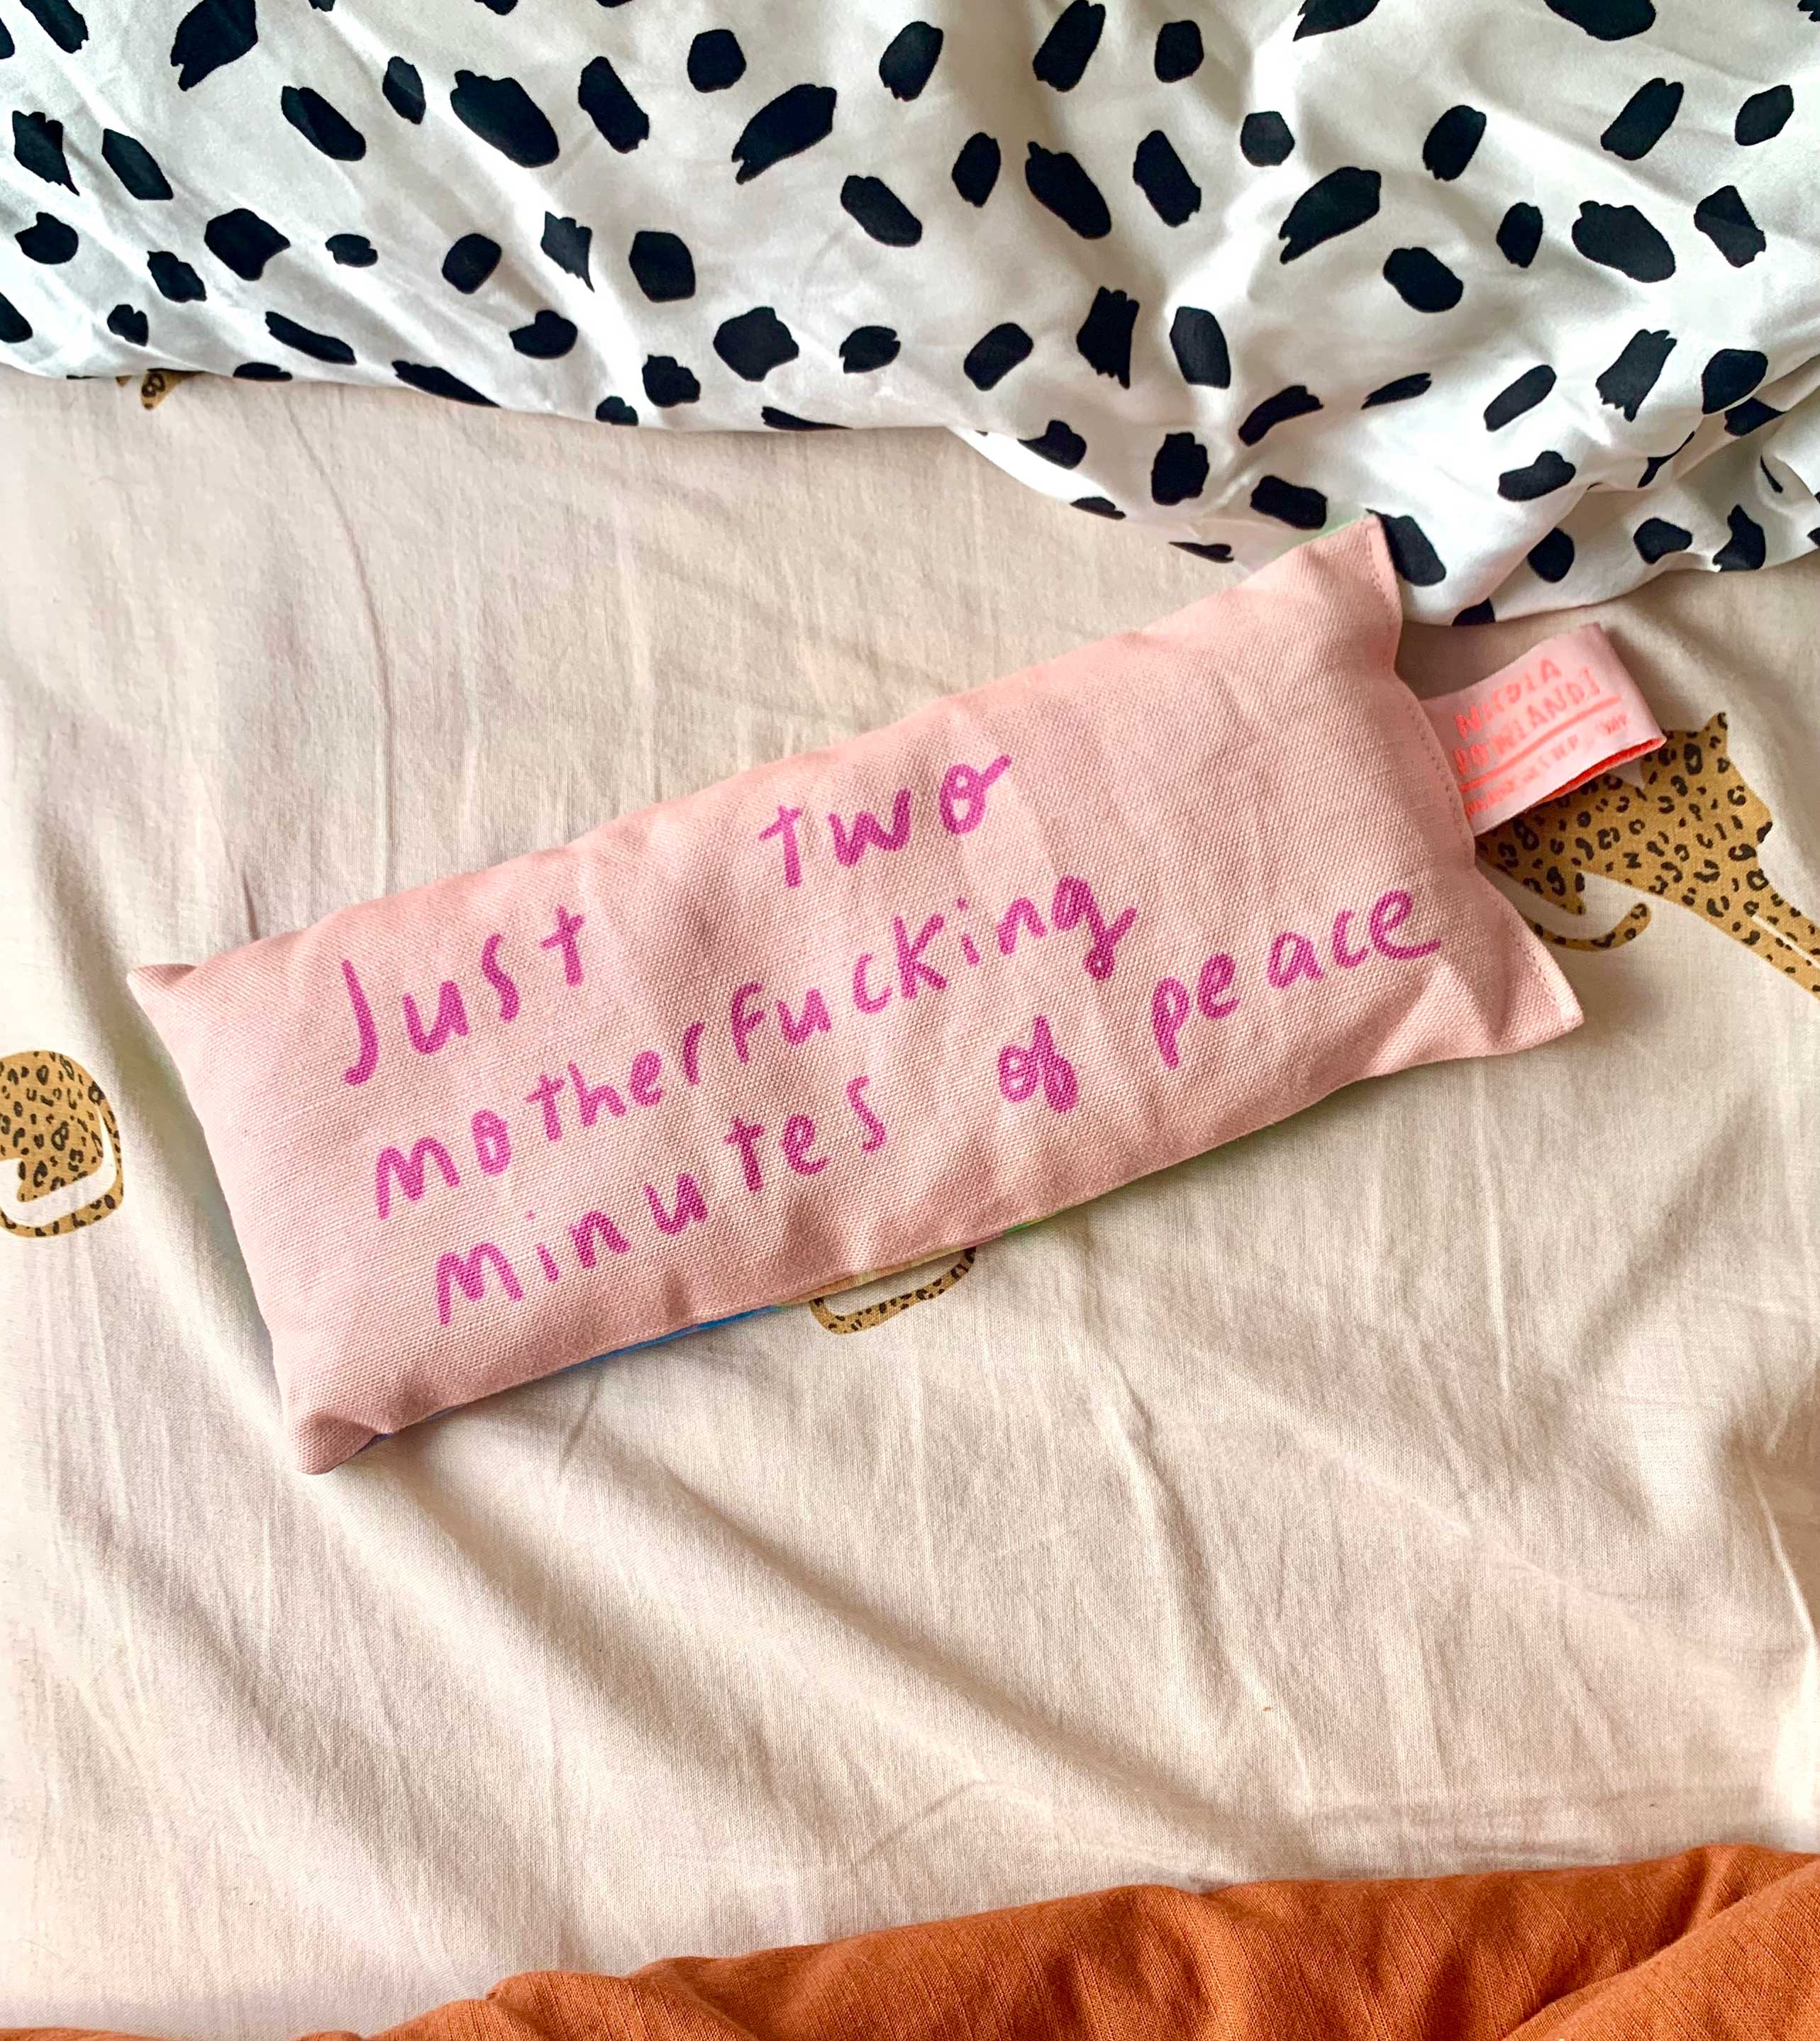 Just two
motherfucking
minutes of peace
NICOLA
ROWLANDS